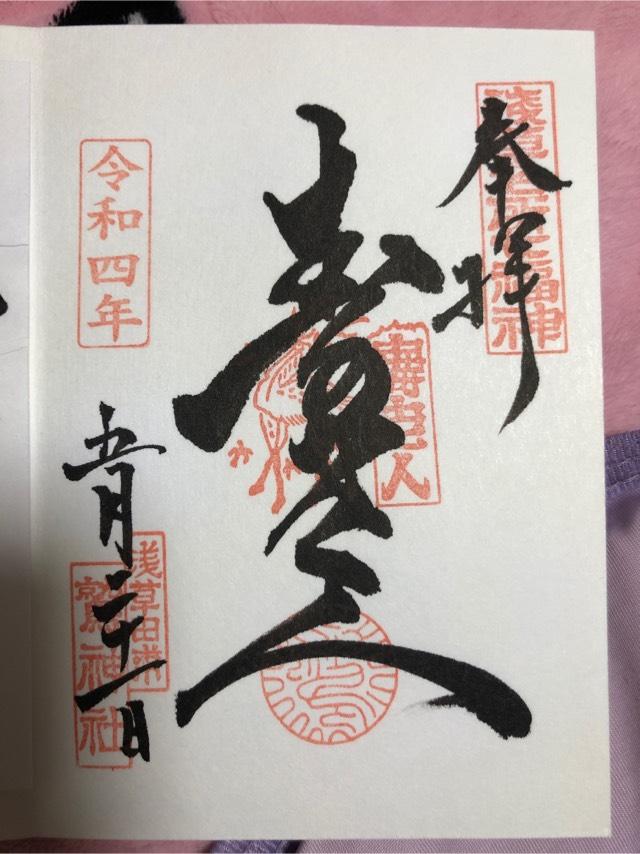 奉拝
浅草名所七福神
寿老人
寿老人
令和四年
五月二十一日
浅草田甫
鷲神社